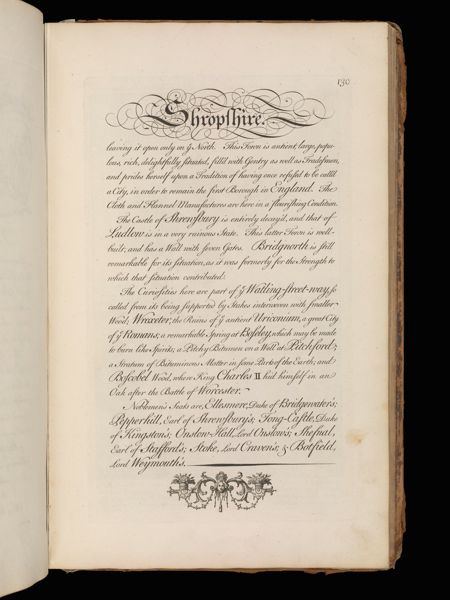 130
Shropshire.
leaving it open only on ẏ North. This Town is antient, large, popu-
lous, rich, delightfully situated, fill'd with Gentry as well as Tradesmen,
and prides herself upon a Tradition of having once refus'd to be call'd
a City, in order to remain the first Borough in England. The
Cloth and Flannel Manufactures are here in a flourishing Condition.
The Castle of Shrewsbury is entirely decay'd, and that of
Ludlow is in a very ruinous State. This latter Town is well-
built; and has a Wall with seven Gates. Bridgnorth is still
remarkable for its situation, as it was formerly for the Strength to
which that situation contributed.
The Curiosities here are part of ẏ Watling-street-way, so
called from its being supported by Stakes interwoven with smaller
Wood; Wroxeter, the Ruins of ẏ antient Uriconium, a great City
of ẏ Romans; a remarkable Spring at Boseley, which may be made
to burn like Spirits; a Pitchy Bitumen on a Well at Pitchford;
a Stratum of Bituminous Matter in some Parts of the Earth; and
Boscobel Wood, where King Charles II hid himself in an
Oak after the Battle of Worcester.
Noblemen's Seats are, Ellesmere, Duke of Bridgewater's;
Pepperhill, Earl of Shrewsbury's; Tong-Castle, Duke
of Kingston's; Onslow-Hall, Lord Onslow's; Shefnal,
Earl of Stafford's; Stoke, Lord Craven's; & Botfield,
Lord Weymouth's.